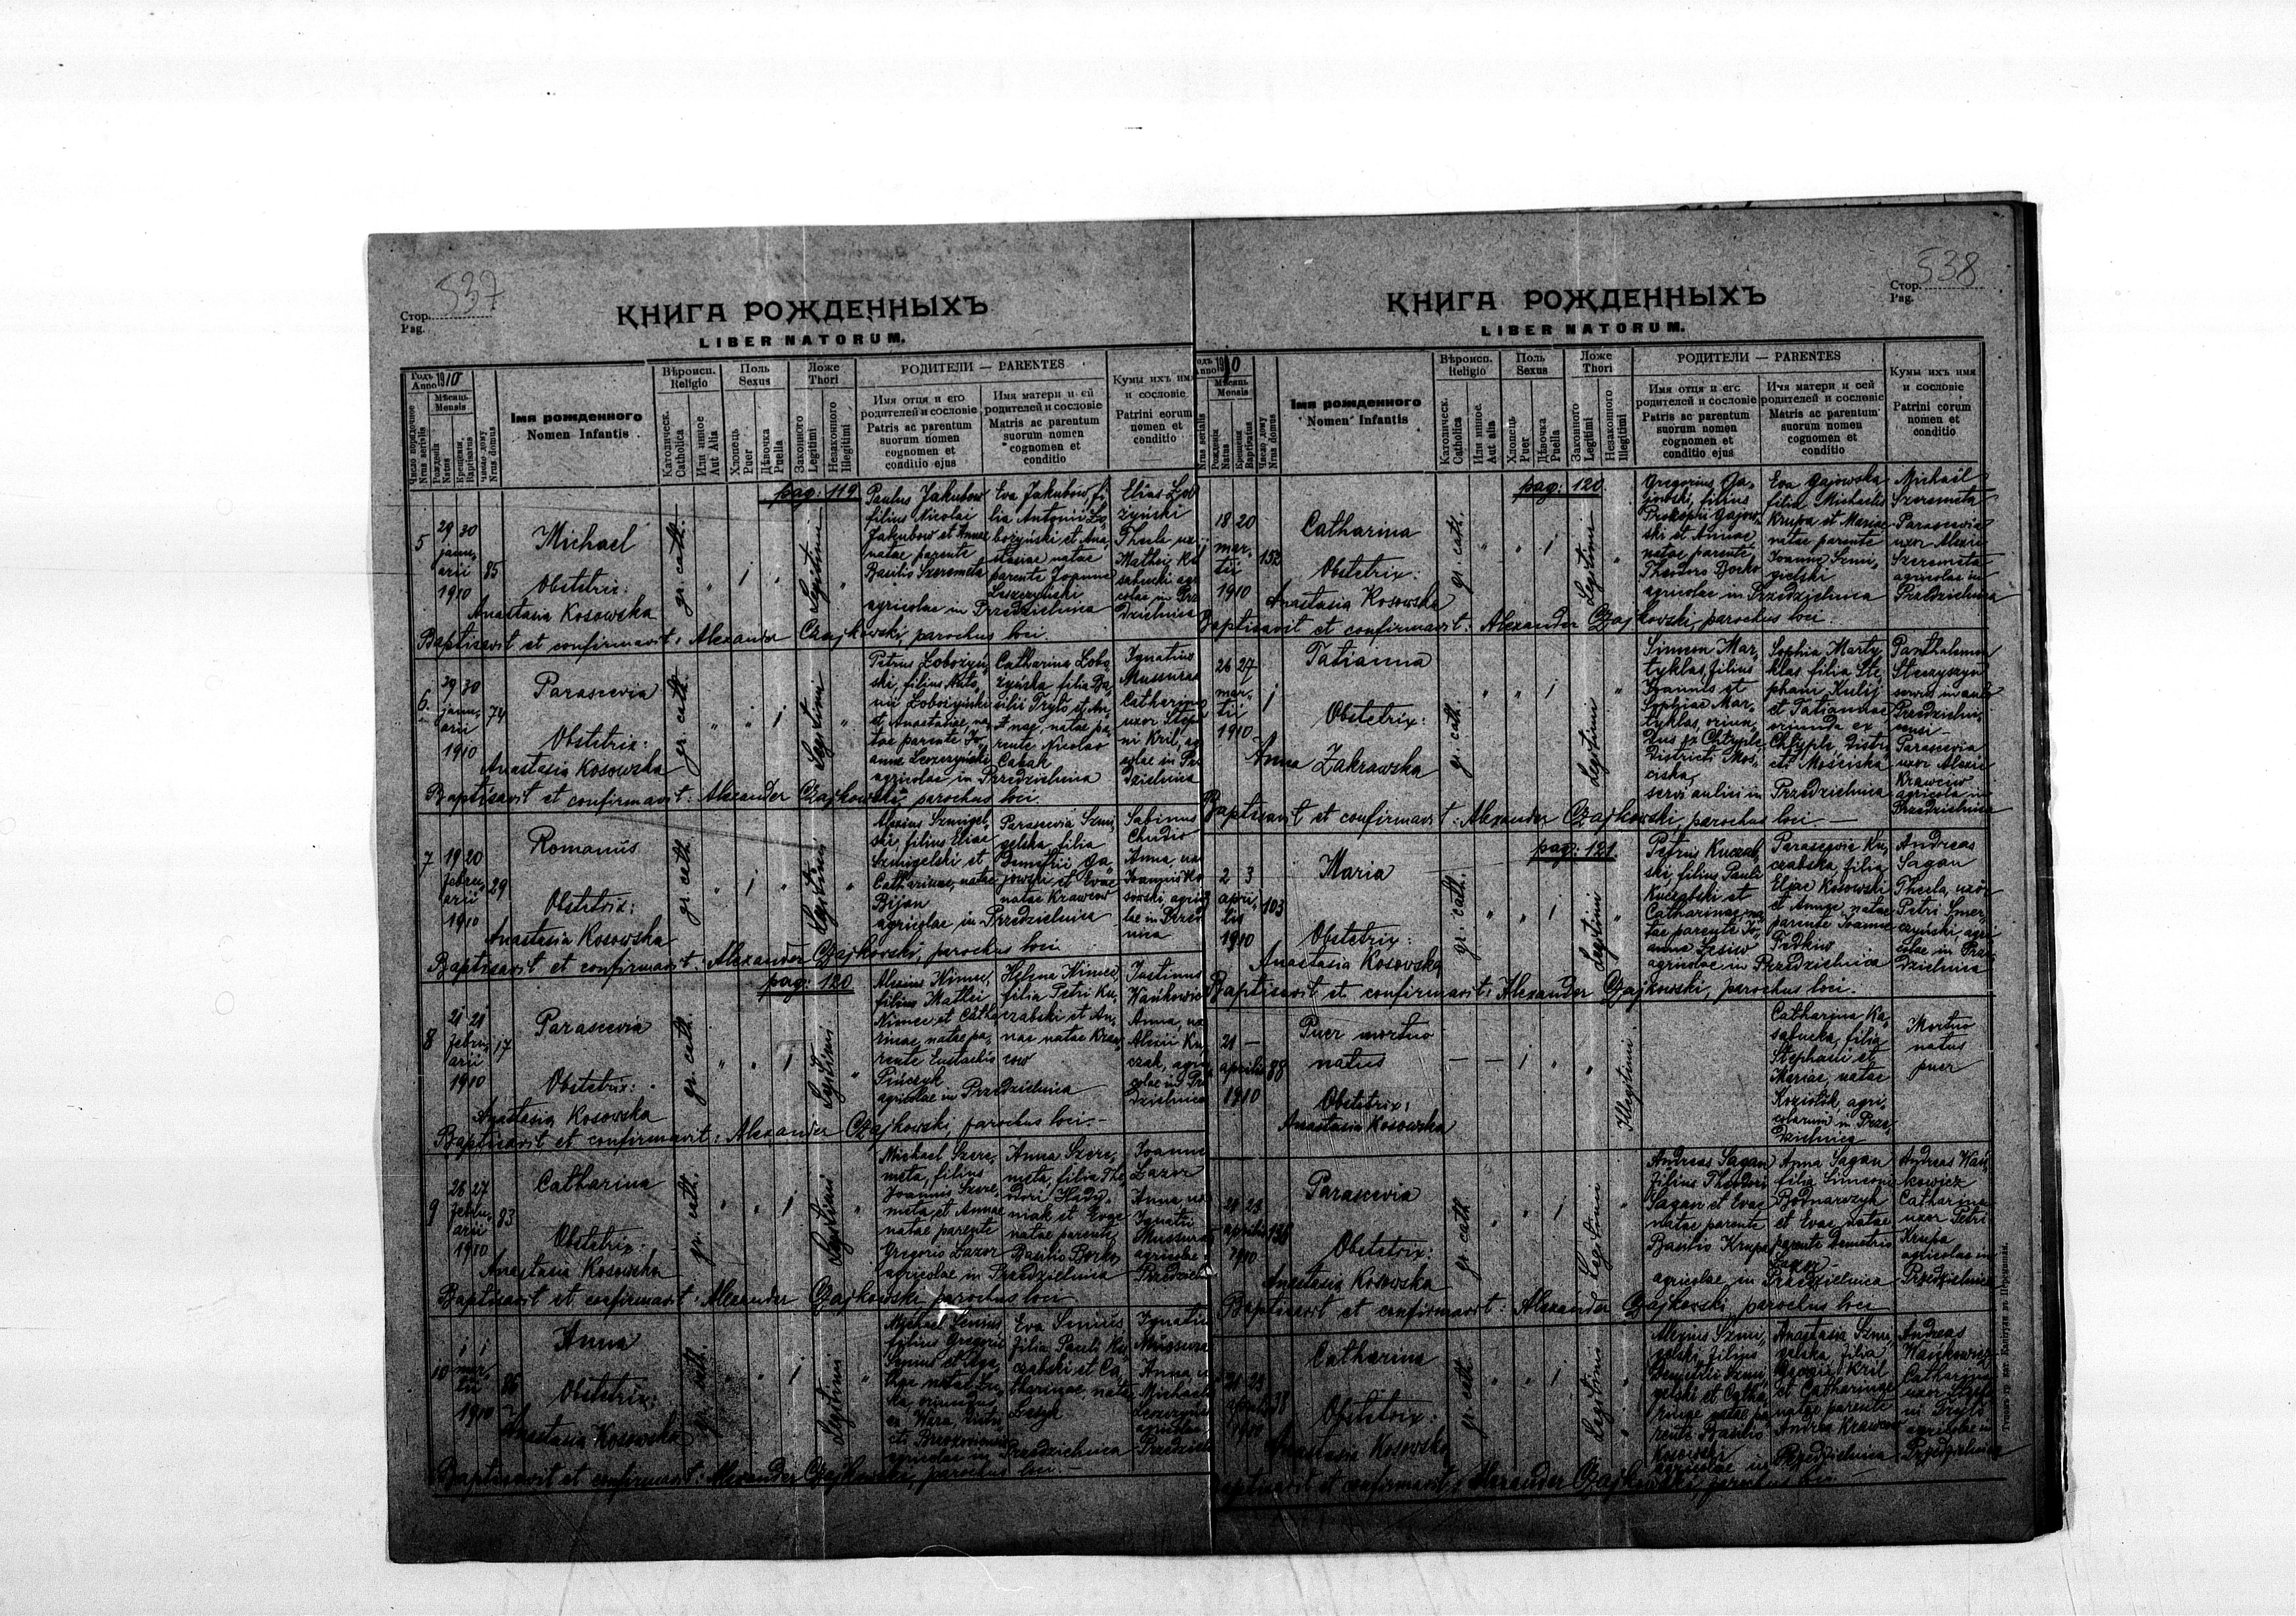 537
Стор.
Pag.
КНИГА РОЖДЕННЫХЪ
LIBER NATORUM.
Годъ 1910
Anno
Мѣсяць
Mensis
Число порядочное
Nrus serialis
Рождень
Natus
Крещень
Baptisatus
Число дому
Nrus domus
Імя рожденного
Nomen Infantis
Вѣроисп.
Religio
Католическ.
Catholica
Или инное
Aut Alia
Поль
Sexus
Хлопець
Puer
Дѣвочка
Puella
Ложе
Thori
Законного
Legitimi
Незаконного
Illegitimi
РОДИТЕЛИ — PARENTES
Имя отця и его
родителей и сословіе
Patris ac parentum
suorum nomen
cognomen et
conditio ejus
Имя матери и ей
родителей и сословіе
Matris ac parentum
suorum nomen
cognomen et
conditio
Кумы ихъ имя
и сословіе
Patrini eorum
nomen et
conditio
pag: 119
5
29 30
janu-
arii
1910
85
Michael
Obstetrix:
Anastasia Kosowska
gr. cath.
" 1 "
Legitimi
"
Paulus Jakubow
filius Nicolai
Jakubow et Annae
natae parente
Basilio Szeremeta
Eva Jakubow, fi-
lia Antonii Lo-
bożyński et Ana-
stasiae natae
parente Joanne
Leszczyński
agricolae in Przedzielnica
Elias Lobo
żyński
Thecla uxor
Mathei Ka
sabucki agri
colae in Prze
dzielnica
Baptisavit et confirmavit: Alexander Czajkowski, parochus loci.
6
29 30
janu-
arii
1910
74
Parascevia
Obstetrix:
Anastasia Kosowska
gr. cath.
" " 1
Legitimi
"
Petrus Lobożyń-
ski, filius Anto-
nii Lobożyński
et Anastasiae, na-
tae parente Jo-
anne Leszczyński
Catharina Lobo-
żyńska filia Ba-
silii Trylo et An-
nae, natae pa-
rente Nicolao
Cabak
agricolae in Przedzielnica
Ignatius
Mussura
Catharina
uxor Steph
ni Kril, ag
colae in Prze
dzielnica
Baptisavit et confirmavit: Alexander Czajkowski parochus loci.
7
19 20
febru-
arii
1910
29
Romanus
Obstetrix:
Anastasia Kosowska
gr. cath.
" 1 "
Legitimi
"
Alexius Szmigel-
ski, filius Eliae
Szmigelski et
Catharinae, natae
Bijan
Parascevia Szmi-
gelska, filia
Demetrii Ga-
jowski et Evae
natae Krawcow
agricolae in Przedzielnica
Sabinus
Chudio
Anna, ux
Joannis Ko
sowski, agrico
lae in Przed
nica
Baptisavit et confirmavit: Alexander Czajkowski, parochus loci
pag: 120
8
21 21
febru-
arii
1910
17
Parascevia
Obstetrix:
Anastasia Kosowska
gr. cath.
" " 1
Legitimi
"
Alexius Nimec,
filius Mathei
Nimec et Catha-
rinae, natae pa-
rente Eustachio
Pińczyk
Helena Nimec
filia Petri Ku-
czabski et An-
nae natae Kraw-
cow
agricolae in Przedzielnica
Justinus
Wańkowicz
Anna, ux
Alexii Ku
czak, agri
colae in Prze
dzielnica
Baptisavit et confirmavit: Alexander Czajkowski, parochus loci.-
9
26 27
febru-
arii
1910
83
Catharina
Obstetrix:
Anastasia Kosowska
gr. cath.
" " 1
Legitimi
"
Michael Szere-
meta, filius
Joannis Szere-
meta et Annae
natae parente
Gregorio Lazor
Anna Szere-
meta, filia Theo-
dori Hady-
niak et Evae
natae parente
Basilio Borko
agricolae in Przedzielnica
Joannes
Lazor
Anna ux
Ignatii
Mussura
agricolae
Przedziel
Baptisavit et confirmavit: Alexander Czajkowski parochus loci
10
1 1
mar-
tii
1910
86
Anna
Obstetrix:
Anastasia Kosowska
gr. cath.
" " 1
Legitimi
"
Michael Senius
filius Gregorii
Senius et Aga-
thae natae
oriundus
ex Wara, distri-
cti Brzozoviensis
Eva Senius
filia Pauli Ku-
czabski et Ca-
tharinae, natae
Lesyk
agricolae in Przedzielnica
Ignatius
Mussura
Anna
Michaelis
Leszczyński
agricolae
Przedziel
Baptisavit et confirmavit: Alexander Czajkowski, parochus loci.-
538
Стор.
Pag.
КНИГА РОЖДЕННЫХЪ
LIBER NATORUM.
Годъ 1910
Anno
Мѣсяць
Mensis
Nrus serialis
Рождень
Natus
Крещень
Baptisatus
Число дому
Nrus domus
Імя рожденного
Nomen Infantis
Вѣроисп.
Religio
Католическ.
Catholica
Или инное.
Aut alia
Поль
Sexus
Хлопець
Puer
Дѣвочка
Puella
Ложе
Thori
Законного
Legitimi
Незаконного
Illegitimi
РОДИТЕЛИ — PARENTES
Имя отця и его
родителей и сословіе
Patris ac parentum
suorum nomen
cognomen et
conditio ejus
Имя матери и ей
родителей и сословіе
Matris ac parentum
suorum nomen
cognomen et
conditio
Кумы ихъ имя
и сословіе
Patrini eorum
nomen et
conditio
pag: 120
18 20
mar-
tii
1910
152
Catharina
Obstetrix:
Anastasia Kosowska
gr. cath.
" " 1
Legitimi
"
Gregorius Ga-
jowski, filius
Prokopii Gajow-
ski et Annae
natae parente
Theodoro Borko
Eva Gajowska
filia Michaelis
Krupa et Mariae
natae parente
Joanne Szmi-
gielski
agricolae in Przedzielnica
Michaël
Szeremeta
Parascevia
uxor Alexii
Szeremeta
agricolae in
Przedzielnica
Baptisavit et confirmavit: Alexander Czajkowski, parochus loci.
26 27
mar-
tii
1910
1
Tatianna
Obstetrix:
Anna Zakrawska
gr. cath.
" " 1
Legitimi
"
Simeon Mar-
tyklas, filius
Joannis et
Sophiae Mar-
tyklas, oriun-
dus ex Chlyple
Districti Mos-
ciska,
servi aulici in
Sophia Marty-
klas filia Ste-
phani Kulij
et Tatiannae
oriunda ex
Chlyple, distri-
cti Mościska
Przedzielnica
Panthalemon
Steczyszyn
servus in aula
Przedzielni-
censi -
Parascevia
uxor Alexii
Krawciw
agricola in
Przedzielnica
Baptisavit et confirmavit: Alexander Czajkowski, parochus loci. —
pag: 121
2 3
apri-
lis
1910
103
Maria
Obstetrix:
Anastasia Kosowska
gr. cath.
" " 1
Legitimi
"
Petrus Kuczab-
ski, filius Pauli
Kuczabski et
Catharinae na-
tae parente Jo-
anne Lesiw
Parascevia Ku-
czabska, filia
Eliae Kosowski
et Annae, natae
parente Joanne
Fedkiw
agricolae in Przedzielnica
Andreas
Sagan
Thecla, uxor
Petri Smer-
czynski, agri-
colae in Prze-
dzielnica
Baptisavit et confirmavit: Alexander Czajkowski, parochus loci.
21 —
aprilis
1910
88
Puer mortuo
natus
Obstetrix:
Anastasia Kosowska
— — 1 "
Illegitimi
Catharina Ka-
sabucka, filia
Stephani et
Mariae, natae
Koziolik, agri-
colarum in Prze-
dzielnica
Mortuo
natus
puer
21 23
aprilis
1910
138
Parascevia
Obstetrix:
Anastasia Kosowska
gr. cath
" " 1
Legitimi
"
Andreas Sagan
filius Theodori
Sagan et Evae
natae parente
Basilio Krupa
Anna Sagan
filia Simeonis
Bodnarczyk
et Evae, natae
parente Demetrio
Lazor
agricolae in Przedzielnica
Andreas Wań-
kowicz
Catharina
uxor Petri
Krupa
agricolae in
Przedzielnica
Baptisavit et confirmavit: Alexander Czajkowski, parochus loci
21 23
aprilis
1910
38
Catharina
Obstetrix:
Anastasia Kosowska
gr. cath
" " 1
Legitimi
"
Alexius Szmi-
gelski, filius
Demetrii Szmi-
gelski et Catha-
rinae natae pa-
rente Basilio
Kosowski
Anastasia Szmi-
gelska, filia
Georgii Kril
et Catharinae
natae parente
Andrea Krawcow
agricolae in Przedzielnica
Andreas
Wańkowicz
Catharina
uxor Stepha-
ni Trylo
agricolae in
Przedzielnica
Baptisavit et confirmavit: Alexander Czajkowski, parochus loci —